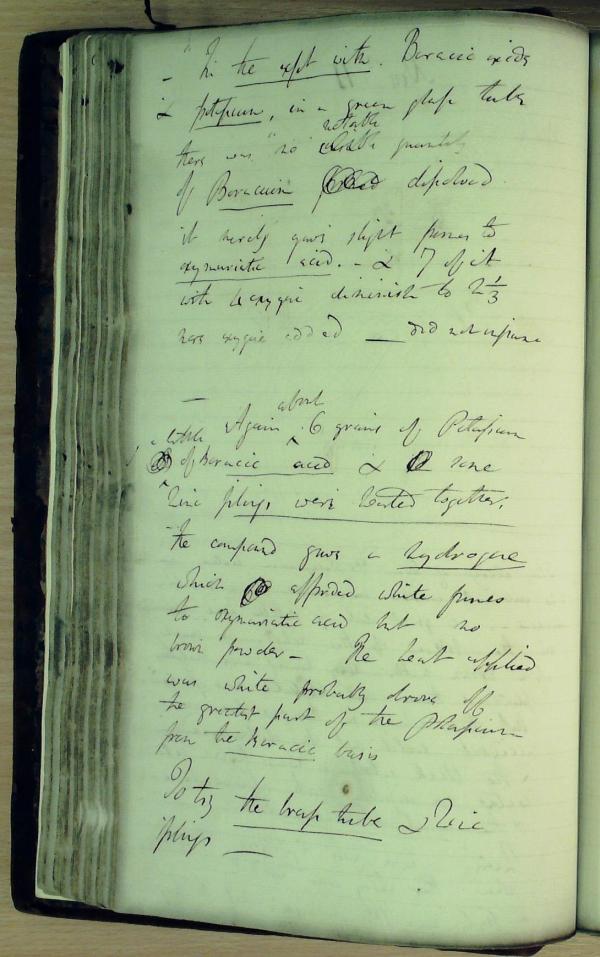 - In the expt with. Boracic acid
& potassium, in a green glass tube
notable
there was no quantity
of Boracium dissolved
it merely gave slight fumes to
oxymuriatic acid. - & 7 of it
with 4 oxygene diminish to 2 1/3
more oxygene added — did not inflame
—
about
Again 6 grains of Potassium
a little
of Boracic acid & some
Zinc filings were heated together.
The compound gave a hydrogene
which afforded white fumes
to oxymuriatic acid but no
brown powder - The heat applied
was white probably drove off
the greatest part of the Potassium
from the Boracic basis
To try the brass tube & Zinc
filings —